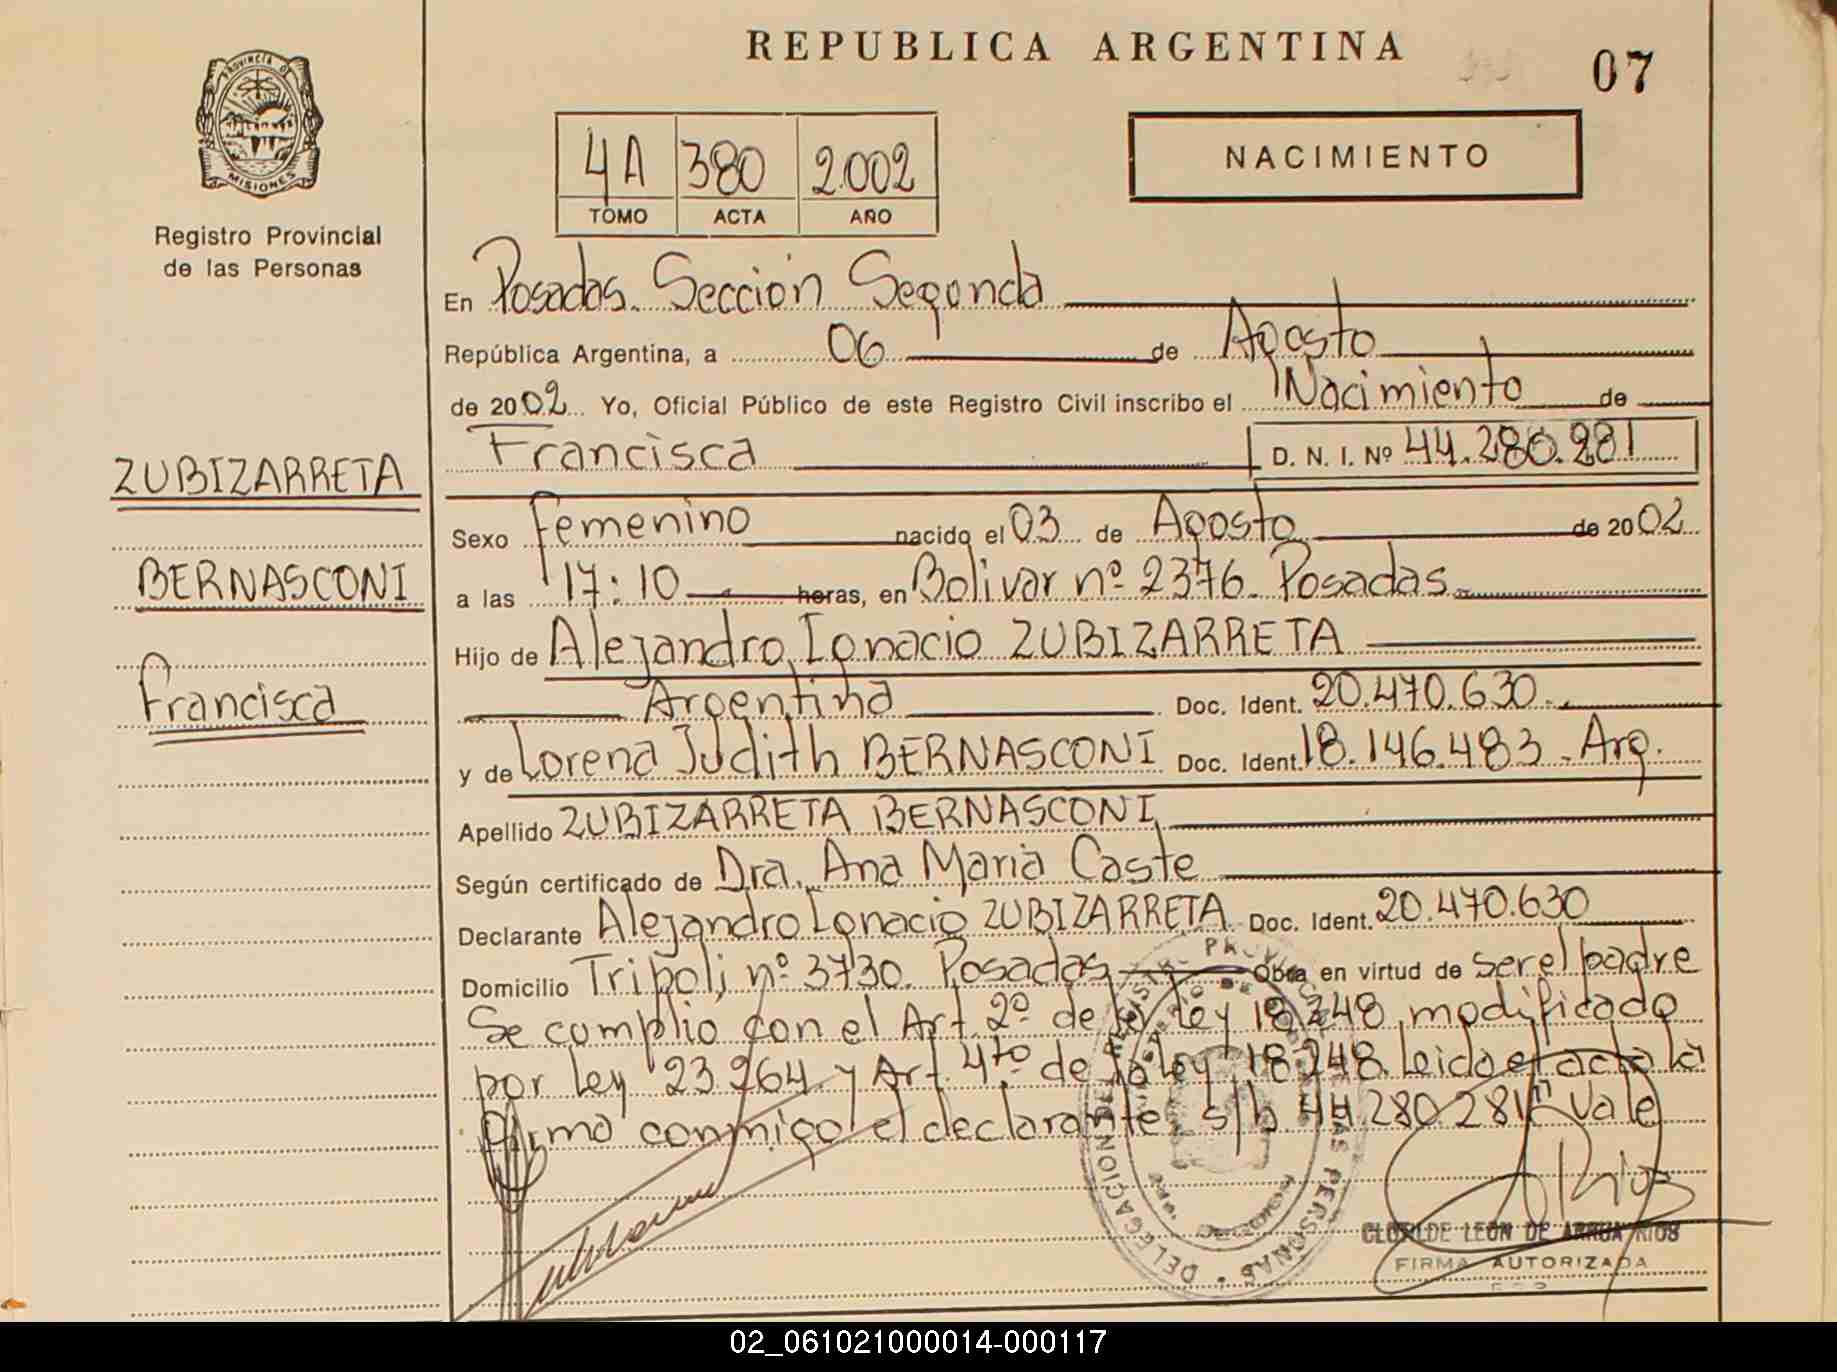 REPUBLICA ARGENTINA
07
PROVINCIA DE
MISIONES
Registro Provincial
de las Personas
4A 380 2.002
TOMO ACTA AÑO
NACIMIENTO
En Posadas. Sección Segunda
República Argentina, a 06 de Agosto
de 2002 Yo, Oficial Público de este Registro Civil inscribo el Nacimiento de
Francisca D. N. I. Nº 44.280.281
ZUBIZARRETA
BERNASCONI
Francisca
Sexo Femenino nacido el 03 de Agosto de 2002
a las 17:10 horas, en Bolivar nº 2376. Posadas
Hijo de Alejandro Ignacio ZUBIZARRETA
Argentina Doc. Ident. 20.470.630
y de Lorena Judith BERNASCONI Doc. Ident. 18.146.483 - Arg.
Apellido ZUBIZARRETA BERNASCONI
Según certificado de Dra. Ana Maria Caste
Declarante Alejandro Ignacio ZUBIZARRETA Doc. Ident. 20.470.630
Domicilio Tripoli nº 3730. Posadas Obra en virtud de ser el padre
Se cumplio con el Art. 2º de la ley 18248 modificado
por ley 23.264 y Art. 4to de la ley 18248. Leido el acta la
firmo conmigo el declarante s/b 44.280.281" vale
DELEGACION DEL REGISTRO PROVINCIAL DE LAS PERSONAS
CLOTILDE LEON DE ARRUA RIOS
FIRMA AUTORIZADA
02_061021000014-000117